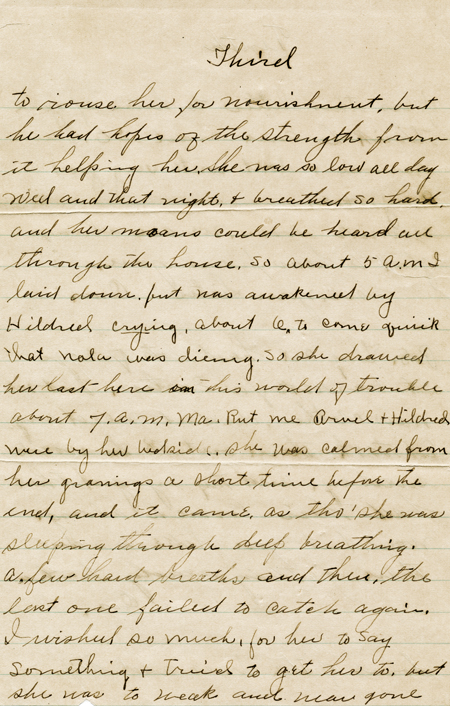 Third
to rouse her for nourishment, but
he had hopes of the strength from
it helping her. She was so low all day
Wed and that night, & breathed so hard,
and her moans could be heard all
through the house. So about 5 a.m I
laid down. but was awakened by
Hildred crying, about 6, to come quick
that Nola was dieing. So she drawed
her last here in this world of trouble
about 7. a.m. Ma. Rut me Orvel + Hildred
were by her bedside. She was calmed from
her groanings a short time before the
end, and it came, as tho' she was
sleeping through deep breathing.
a few hard breaths and then, the
last one failed to catch again.
I wished so much, for her to say
something + tried to get her to, but
she was to weak and near gone